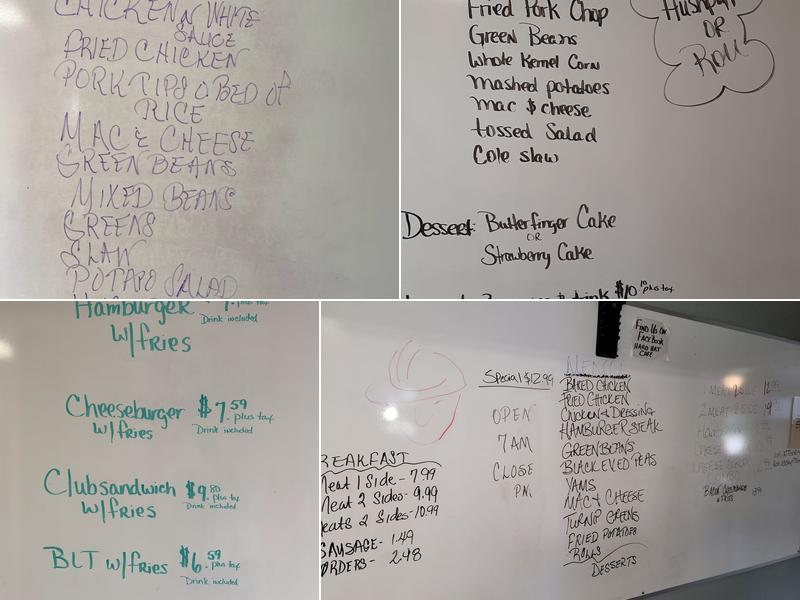 CHICKEN N WHITE
SAUCE
FRIED CHICKEN
PORK TIPS O BED OF
RICE
MAC & CHEESE
GREEN BEANS
MIXED BEANS
GREENS
SLAW
POTATO SALAD
Fried Pork Chop
Green Beans
Whole Kernel Corn
mashed potatoes
mac $ cheese
tossed Salad
Cole slaw
Hushpup
OR
Roll
Dessert: Butterfinger Cake
OR
Strawberry Cake
drink $10 plus tax
Hamburger plus tax
Drink included
W/fries
Cheeseburger $7.59 plus tax
W/fries Drink included
Clubsandwich $9.80 plus tax
W/fries Drink included
BLT W/fries $6.59 plus tax
Drink included
FIND US ON
FACEBOOK
HARD HAT
CAFE
Special $12.99
OPEN
7AM
CLOSE
PM
REAKFAST
Meat 1 Side - 7.99
Meat 2 Sides - 9.99
eats 2 Sides - 10.99
SAUSAGE - 1.49
ORDERS - 2.48
MENU
BAKED CHICKEN
FRIED CHICKEN
CHICKEN & DRESSING
HAMBURGER STEAK
GREEN BEANS
BLACK EYED PEAS
YAMS
MAC & CHEESE
TURNIP GREENS
FRIED POTATOES
ROLLS
DESSERTS
1 MEAT 2 SIDE
2 MEAT 2 SIDE